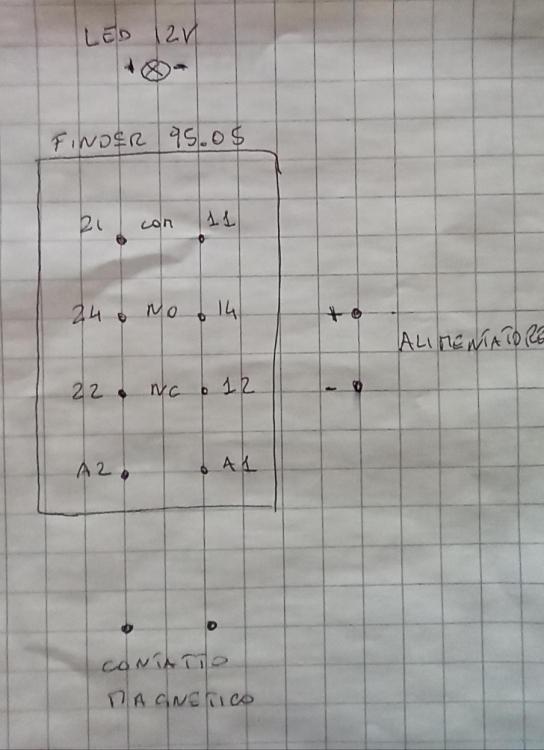 LED 12V
+ -
FINDER 95.05
21 com 11
24 NO 14
+
ALIMENTATORE
22 NC 12
-
A2 A1
CONTATTO
MAGNETICO